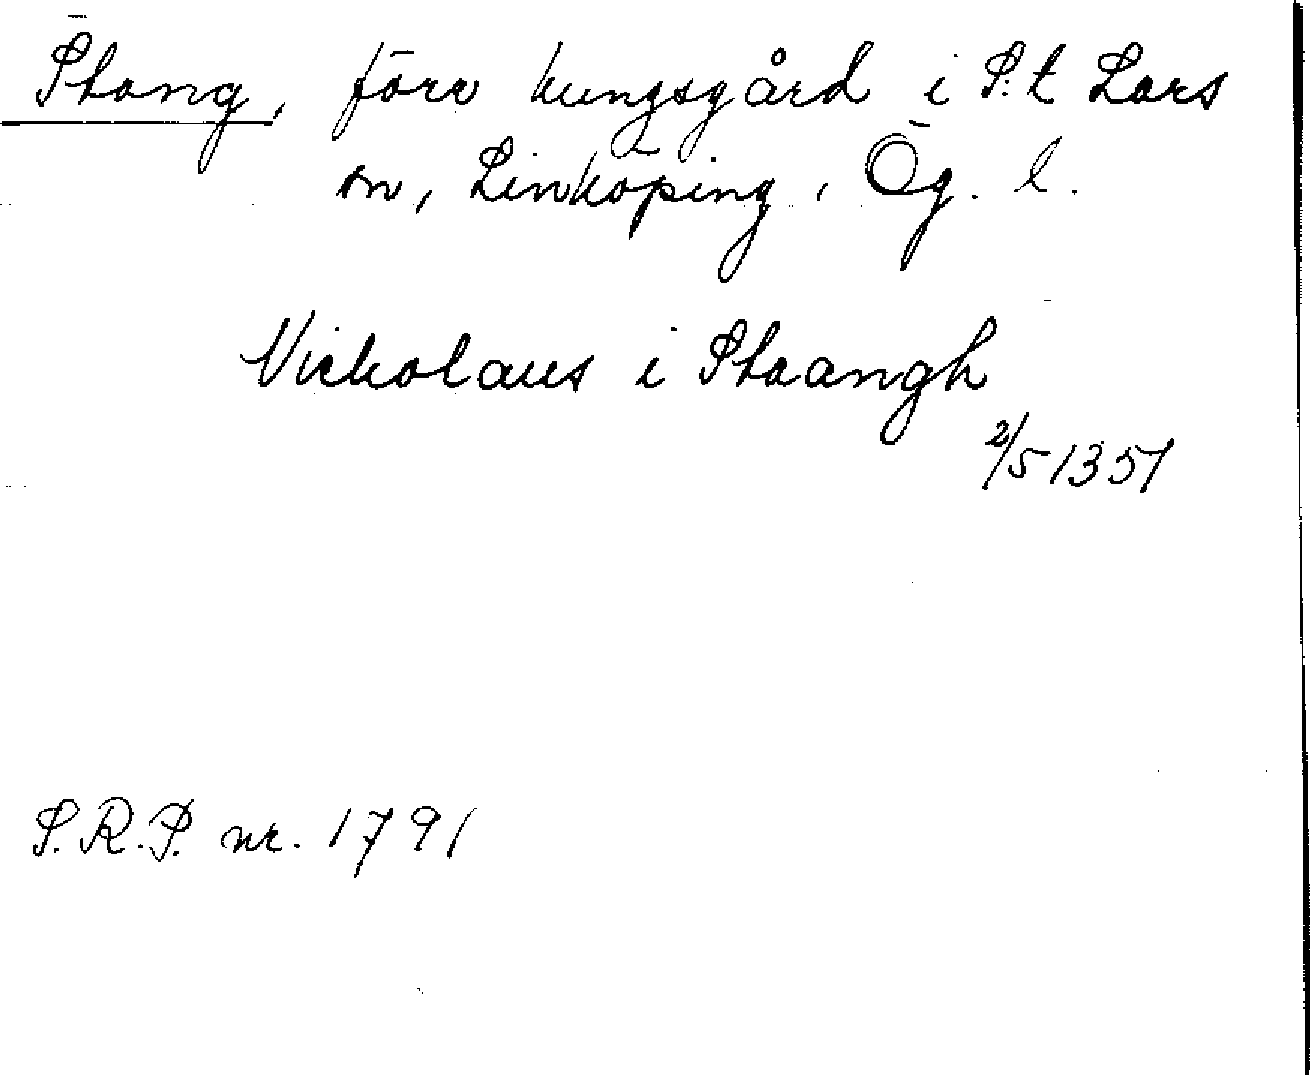 Stang, förv kungsgård i S:t Lars
sn, Linköping, Ög. l.
Nickolaus i Staangh
2/5 1351
S.R.P. nr. 1791